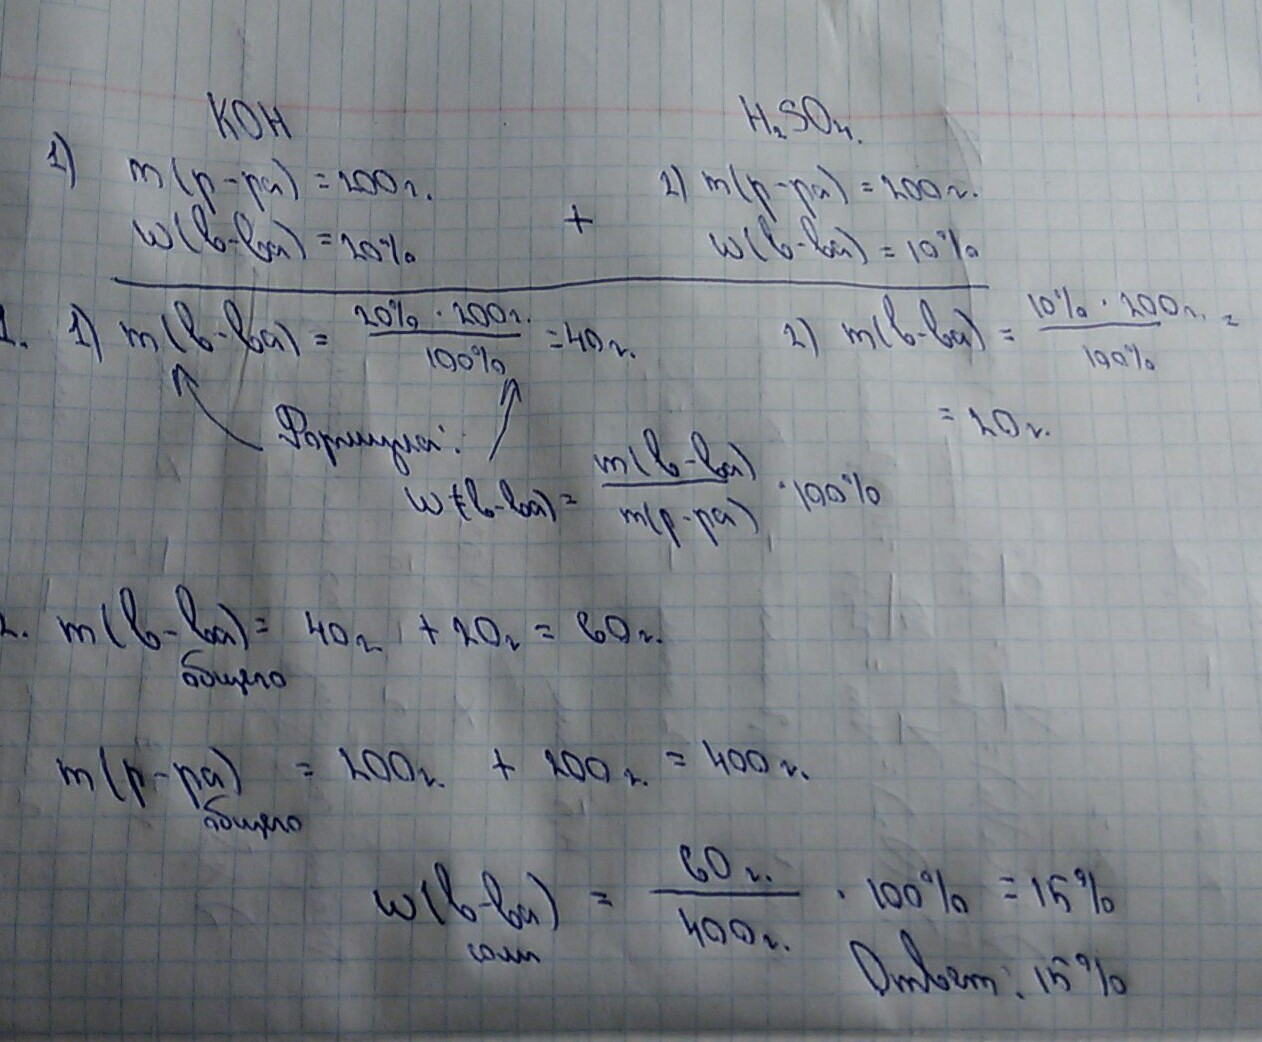 KOH H₂SO₄.
1) m(р-ра) = 200 г. 2) m(р-ра) = 200 г.
w(в-ва) = 20% + w(в-ва) = 10%
1. 1) m(в-ва) = 20% · 200 г. / 100% = 40 г. 2) m(в-ва) = 10% · 200 г. / 100% =
= 20 г.
Формула:
w(в-ва) = m(в-ва) / m(р-ра) · 100%
2. m(в-ва) общего = 40 г + 20 г = 60 г.
m(р-ра) общего = 200 г. + 200 г. = 400 г.
w(в-ва) соли = 60 г. / 400 г. · 100% = 15%
Ответ: 15%